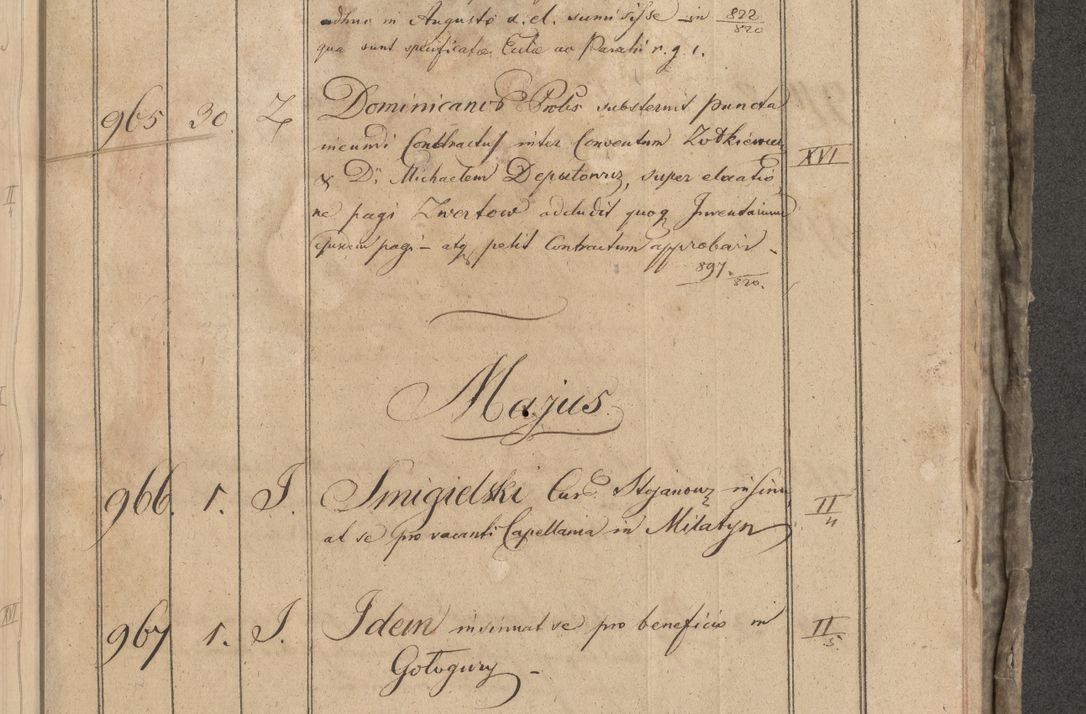 adhuc in Augusto a. el. sumisisse in 822/820
qua sunt specificatae Eccla ac Parochi r. g. 1.
965 30. Z Dominicanor Probs substernit puncta
ineundi Contractus inter Conventum Zołkiewien XVI
& Dn Michaelem Deputowicz, super elocatio
ne pagi Zwertow adcludit quoq Inventarium
ejusdem pagi – atq petit Contractum approbari -
897./820.
Majus
966. 1. J. Smigielski Curs. Stojanowz insinu II/4
at se pro vacanti Capellania in Milatyn
967 1. J. Idem insinuat se pro beneficio in II/5
Gołogury –
II/4
XVI